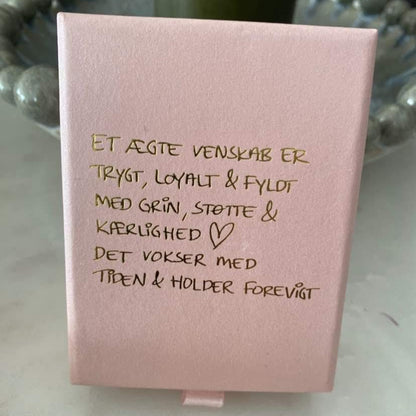 ET ÆGTE VENSKAB ER
TRYGT, LOYALT & FYLDT
MED GRIN, STØTTE &
KÆRLIGHED ♡
DET VOKSER MED
TIDEN & HOLDER FOREVIGT